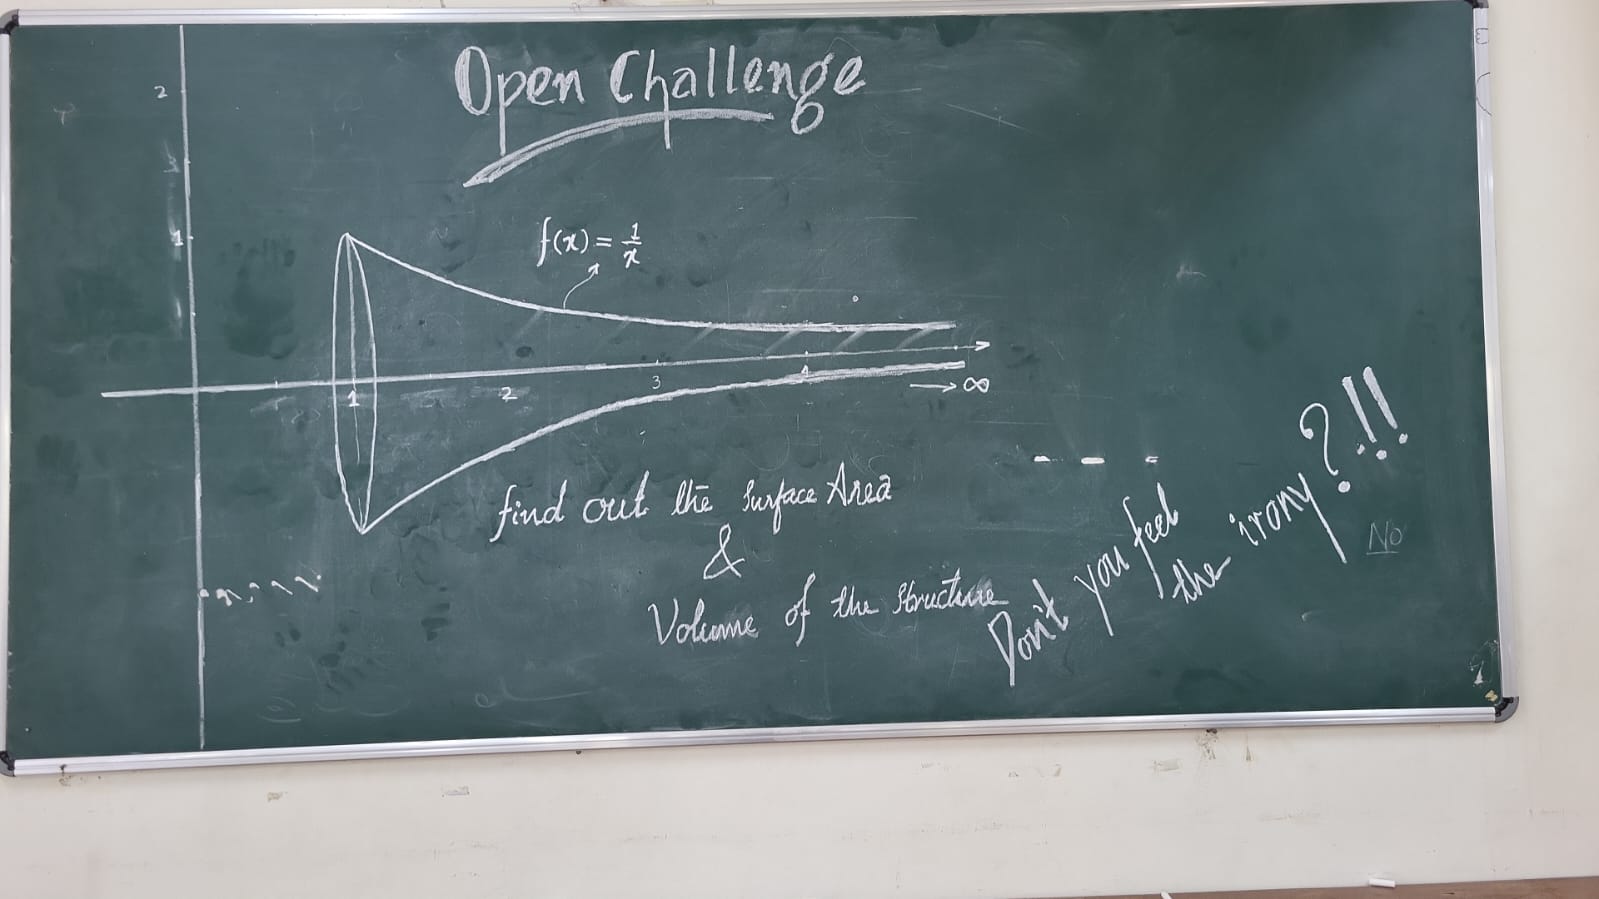 Open Challenge
2
1
f(x) = 1/x
1
2
3
4
→ ∞
find out the Surface Area
&
Volume of the structure
Don't you feel
the irony?!!
No